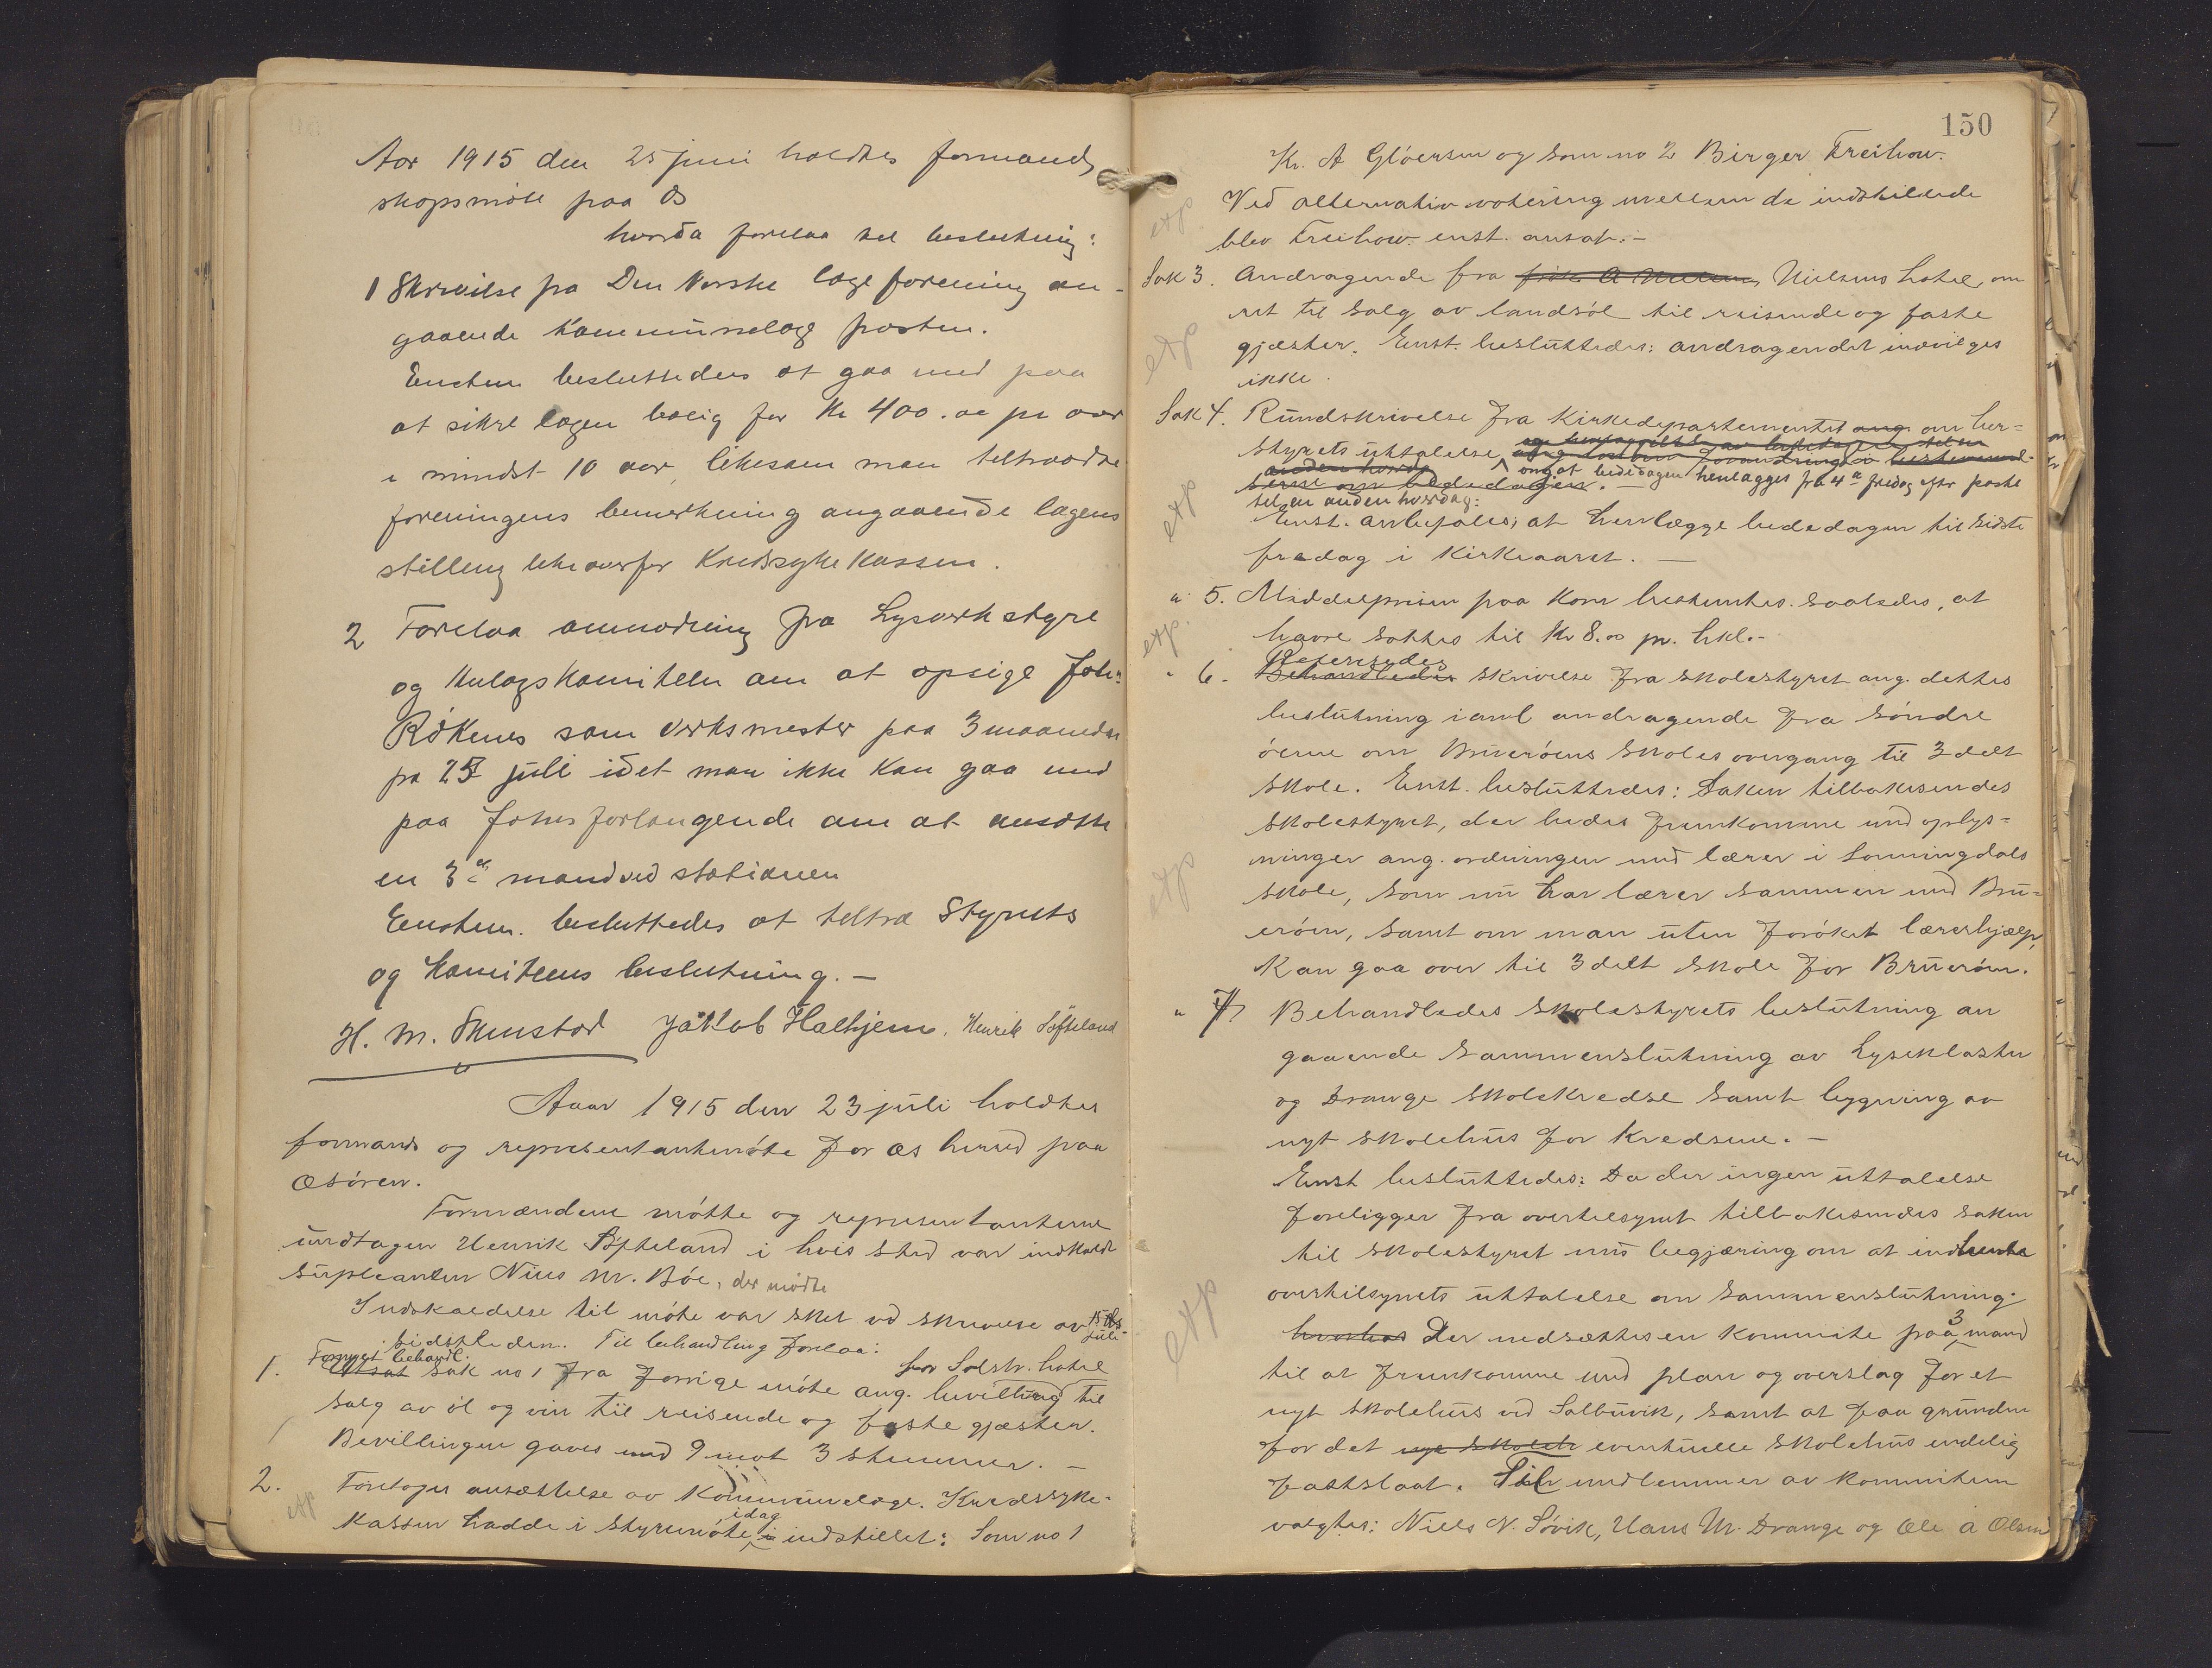 Aar 1915 den 25 juni holdtes formand
skapsmøte paa Os
hvorda forelaa til beslutning:
1 Skrivelse fra Den Norske lægeforening an-
gaaende Kommunelæge posten.
Enstem besluttedes at gaa med paa
at sikre lægen bolig for Kr 400.00 pr aar
i mindst 10 aar, likesom man tiltraadte
foreningens bemerkning angaaende lægens
stilling likeoverfor Kredssykekassen.
2 Forelaa anmodning fra Lysverkstyre
og Anlægskomiteen om at opsige Johs
Röknes som verksmester paa 3 maaneder
fra 25 juli idet man ikke kan gaa med
paa Johs forlangende om at ansætte
en 3die mand ved stationen
Enstem. besluttedes at tiltræ Styrets
og Komiteens beslutning. —
H. M. Skinstad Jakob Halhjem. Henrik Søfteland
Aar 1915 den 23 juli holdtes
formands og representantmøte for Os herred paa
Osøren.
Formændene møtte og representanterne
undtagen Henrik Søfteland i hvis sted var indkaldt
supleanten Nils M. Bøe, der mødte
Indkaldelse til møte var sket ved skrivelse av 15 ds.
juli
bidstikken. Til behandling forelaa:
Fornyet behandl. for Solstr. hotel
1. Utsat sak no 1 fra forrige møte ang. bevilling til
salg av øl og vin til reisende og faste gjæster.
Bevillingen gaves med 9 mot 3 stemmer. —
2. Foretoges ansættelse av Kommunelæge. Kredssyke-
idag
etp kassen hadde i styremøte i indstillet: Som no 1
150
Kr. A Gløersen og som no 2 Birger Freihow.
etp Ved alternativ votering mellem de indstillede
blev Freihow enst. ansat. —
Sak 3. Andragende fra Nielsens hotel, om
ret til salg av landsøl til reisende og faste
etp gjæster. Enst. besluttedes: andragendet indvilges
ikke.
Sak 4. Rundskrivelse fra Kirkedepartementet ang. om her-
styrets uttalelse
om at bededagen henlægges fra 4de fredag efter paaske
til en anden hverdag:
etp Enst. anbefales, at henlægge bededagen til sidste
fredag i Kirkeaaret. —
" 5. Middelprisen paa Korn bestemtes saaledes, at
etp. havre sættes til Kr 8.00 pr. hkl. -
Refereredes
" 6. Behandledes skrivelse fra skolestyret ang. dettes
beslutning i anl andragende fra Søndre
øerne om Bruerøens skoles overgang til 3 delt
skole. Enst. besluttedes: Saken tilbakesendes
skolestyret, der bedes fremkomme med oplys-
ninger ang. ordningen med lærer i Sonningdals
etp skole, som nu har lærer sammen med Bru-
erøen, samt om man uten forøket lærerhjælp,
kan gaa over til 3 delt skole for Bruerøen.
" 7 Behandledes skolestyrets beslutning an
gaaende sammenslutning av Lyseklaster
og Drange skolekredse samt bygning av
nyt skolehus for kredsene. —
Enst besluttedes: Da der ingen uttalelse
foreligger fra overtilsynet tilbakesendes saken
til skolestyret med begjæring om at indhente
overtilsynets uttalelse om sammenslutning.
3
etp hvorhos Der nedsættes en komite paa mand
til at fremkomme med plan og overslag for et
nyt skolehus ved Salbuvik, samt at faa grunden
for det nye skoleh eventuelle skolehus endelig
fastslaat. Til medlemmer av kommiteen
valgtes: Niels N. Søvik, Hans M. Drange og Ole A Olsen